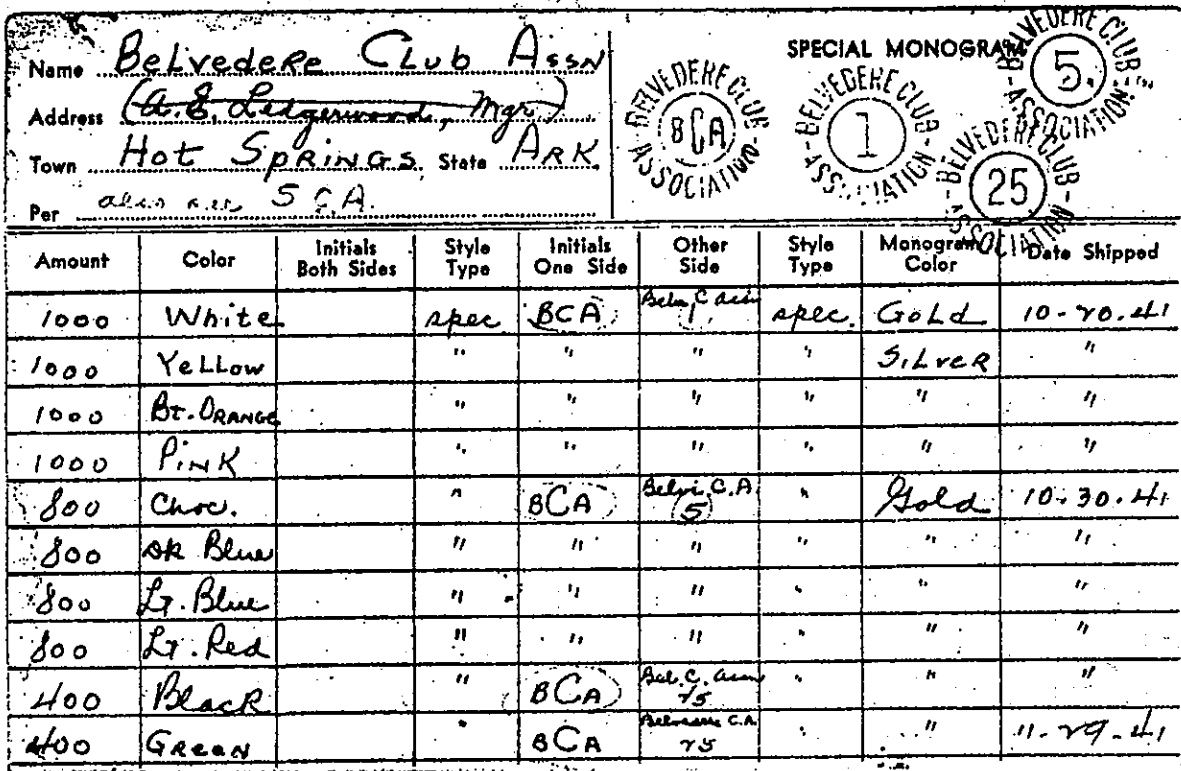 Name Belvedere Club Assn
Address (A.E. Ledgerwood, Mgr.)
Town Hot Springs State Ark
Per 5 C.A.
SPECIAL MONOGRAM
BELVEDERE CLUB ASSOCIATION BCA
BELVEDERE CLUB ASSOCIATION 1
BELVEDERE CLUB ASSOCIATION 5.
BELVEDERE CLUB ASSOCIATION 25
Amount Color Initials Both Sides Style Type Initials One Side Other Side Style Type Monogram Color Date Shipped
1000 White spec BCA Belv C assn 1. spec. Gold 10-20-41
1000 Yellow " " " " Silver "
1000 Bt. Orange " " " " " "
1000 Pink " " " " " "
800 Choc. " BCA Belvi C.A. 5 " Gold 10-30-41
800 Dk Blue " " " " " "
800 Lt. Blue " " " " " "
800 Lt. Red " " " " " "
400 Black " BCA Bel. C. assn 25 " " "
400 Green " BCA C.A. 25 " " 11-29-41